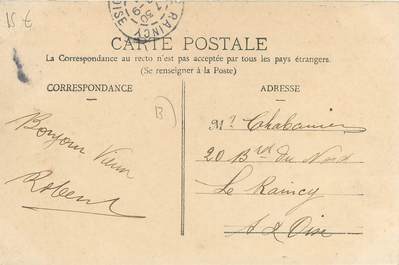 15 €
LE RAINCY
OISE
CARTE POSTALE
La Correspondance au recto n'est pas acceptée par tous les pays étrangers.
(Se renseigner à la Poste)
CORRESPONDANCE
Bonjour Vieux
Robert
B)
ADRESSE
Mr
20 Bvd du Nord
Le Raincy
S & Oise